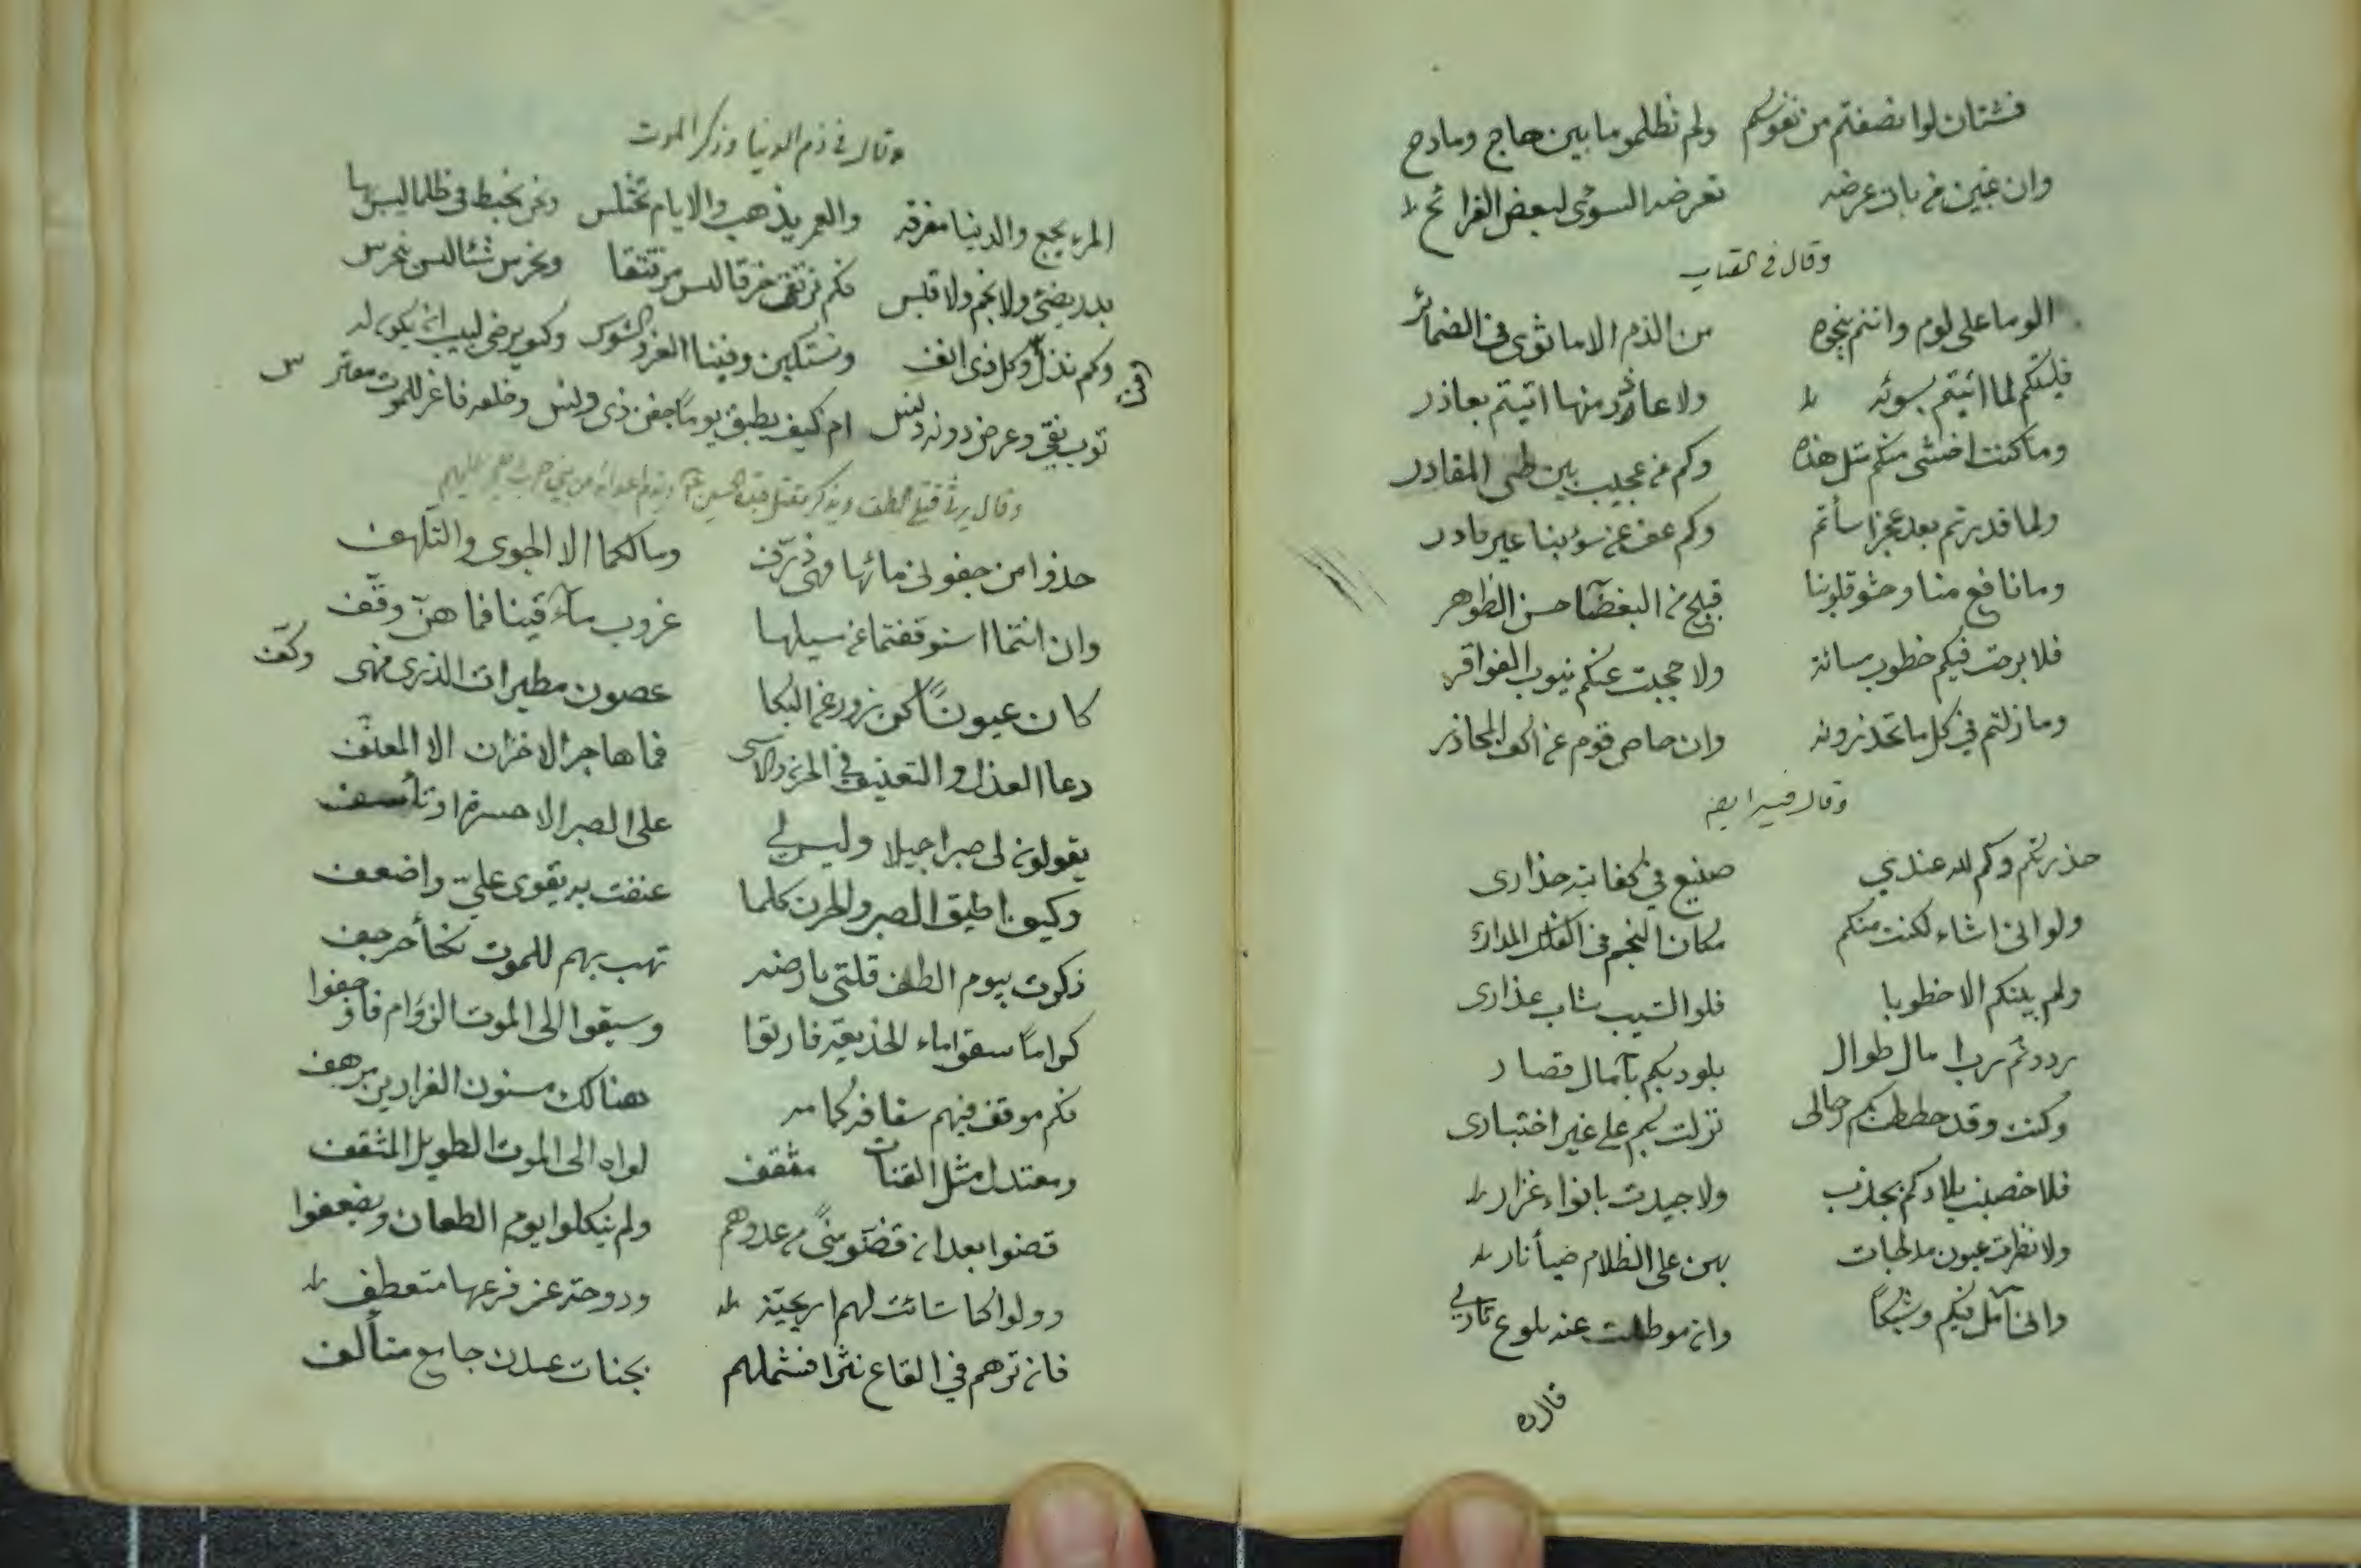 فشتان لوا نصفتم من نفوسكم ولم تظلموما بين هاج ومادح
وان غبين من بات عرضه تعرضه السوئى لبعض القرائح
وقال في العتاب
الوما على لوم وانتم بنجوة من الذم الا ما ثوى في الضمائر
فليتكم لما اتيتم بسوئه ولا عاذر منها اتيتم بعاذر
وما كنت اخشى منكم مثل هذه وكم من عجيب بين طى المقادر
ولما قدرتم بعد عجز اسأتم وكم عف عن سوء بنا غير قادر
وما نافع منا وحشو قلوبنا قبيح من البغضآ حسن الظواهر
فلا برحت فيكم خطوب مسائة ولا حجبت عنكم نيوب الفواقر
وما زلتم في كل ما تحذرونه وان حاص قوم عن اكف المحاذر
وقال فيه ايضا
حذرتكم وكم لله عندي صنيع في كفايته حذارى
ولو انى اشاء لكنت منكم مكان النجم في الفلك المدار
ولم يلنكم الا خطوبا فلو الشيب شاب عذارى
رددتم رب امال طوال بلودكم بآمال قصار
وكنت وقد حططت بكم رحالى نزلت بكم على غير اختيارى
فلا خصبت بلادكم بجدب ولا جيدت بانواء غزار
ولا نظرت عيون مدلجات بهن على الظلام ضيأ نار
وانى آمل فيكم وشيكاً وان موطلت عنه بلوغ ثارى
قال ره
وقال في ذم الدنيا وذكر الموت
المرء يجمع والدنيا مفرقه والعمر يذهب والايام تختلس ونحن نخبط في ظلما ليس بها
بدر يضئ ولا نجم ولا قبس فكم نرتق خرقا ليس مرتتقا ونحرس شئا ليس ينحرس
وكم نذل وكل ذى انف ونستكين وفينا العز والشوس وكيف يرضى لبيب ان يكون له
ثوب نقى وعرض دونه دنس ام كيف يطبق يوماً جفن ذى وخلفه فاغر للموت مفتر س
وقال يرثى قتلى الطف ويذكر مقتل جده الحسين ع ويذم اعدائه من بني حرب
خذوا من جفونى مائها فهى ذرّف ومالكما الا الجوى والتلهف
وان انتما استوقفتما عن سيلها غروب مآقينا فما هنّ وقّف
كان عيوناً كن زورا عن البكا غصون مطيرات الذرى فهى وكّف
دعا العذل والتعنيف في الحزن والاسى فما هاجر الاحزان الا المعنّف
يقولون لى صبرا جميلا وليس لي على الصبر الا حسرة او تأسف
وكيف اطيق الصبر والحزن كلما عنفت به يقوى علىّ واضعف
ذكرت بيوم الطف قتلى بارضه تهب بهم للموت نكبأ حرجف
كراماً سقوا ماء الخديعة فارتقوا وسيقوا الى الموت الزؤام فاوجفوا
فكم موقف فيهم سفا فركمامه هنالك مسنون الغرارين مرهف
ومعتدل مثل القناة مثقف لواه الى الموت الطويل المثقف
قضوا بعد ان قضّو منًى من عدوهم ولم ينكلوا يوم الطعان ويضعفوا
وولوا كما شائت لهم اريحيّة ودوحة عز فرعها متعطف
فان ترهم في القاع نثرا فشملهم بجنات عدن جامع متألف